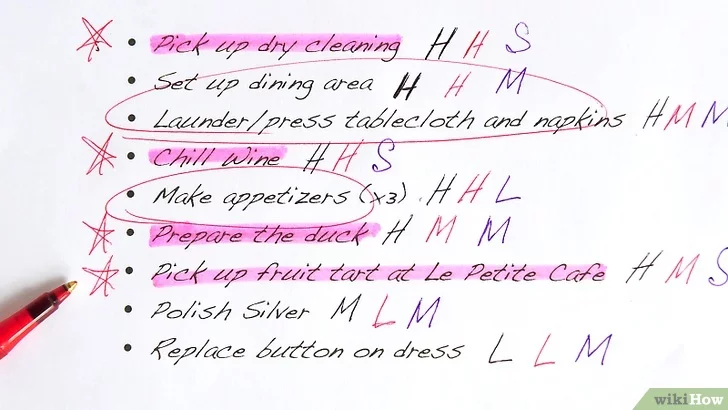 Pick up dry cleaning H H S
Set up dining area H H M
Launder/press tablecloth and napkins H M M
Chill Wine H H S
Make appetizers (x3) H H L
Prepare the duck H M M
Pick up fruit tart at Le Petite Cafe H M S
Polish Silver M L M
Replace button on dress L L M
wikiHow